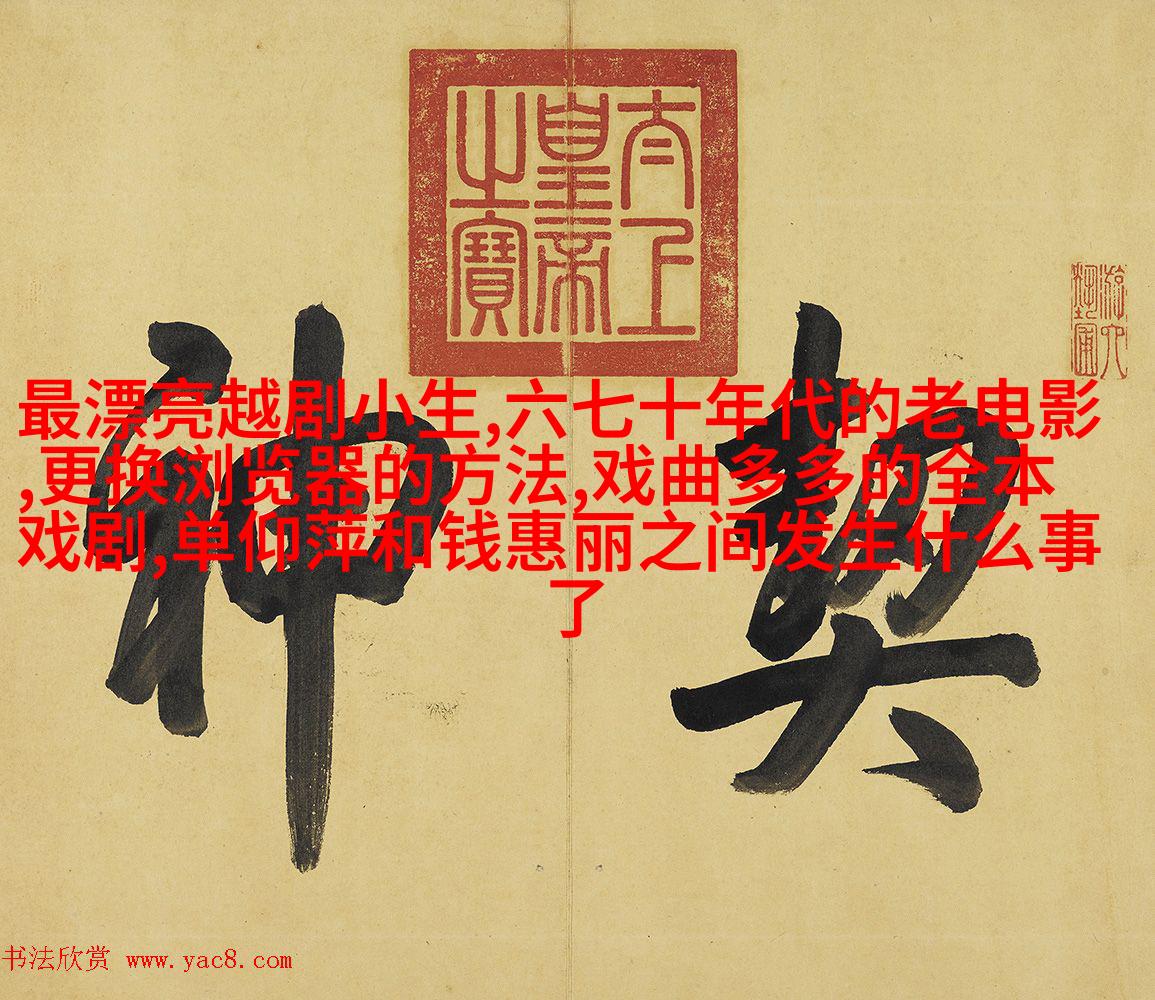 太上
皇帝
之寶
游六
藝圃
契神
最漂亮越剧小生,六七十年代的老电影
,更换浏览器的方法,戏曲多多的全本
戏剧,单仰萍和钱惠丽之间发生什么事
了
书法欣赏 www.yac8.com